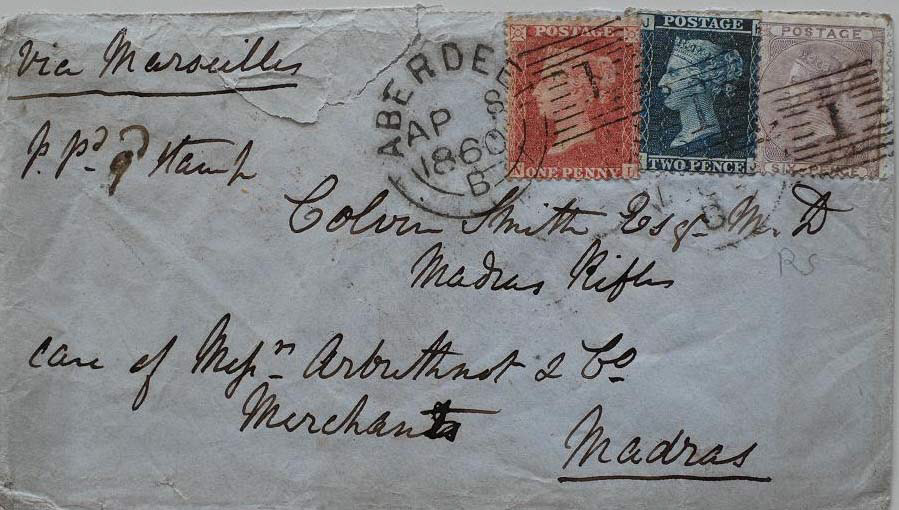 Via Marseilles
p. pd 9d stamp
ABERDEEN
AP 8
1860
B
POSTAGE
ONE PENNY
POSTAGE
TWO PENCE
POSTAGE
SIX PENCE
1
1
Colvin Smith Esqr M. D
Madras Rifles
RS
care of Messrs Arbuthnot & Co
Merchants
Madras